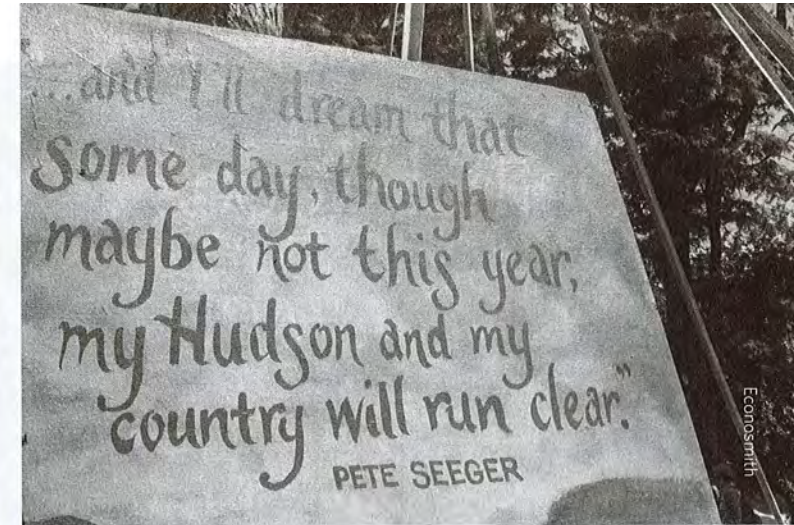 ...and I'll dream that
some day, though
maybe not this year,
my Hudson and my
country will run clear."
PETE SEEGER
Econosmith